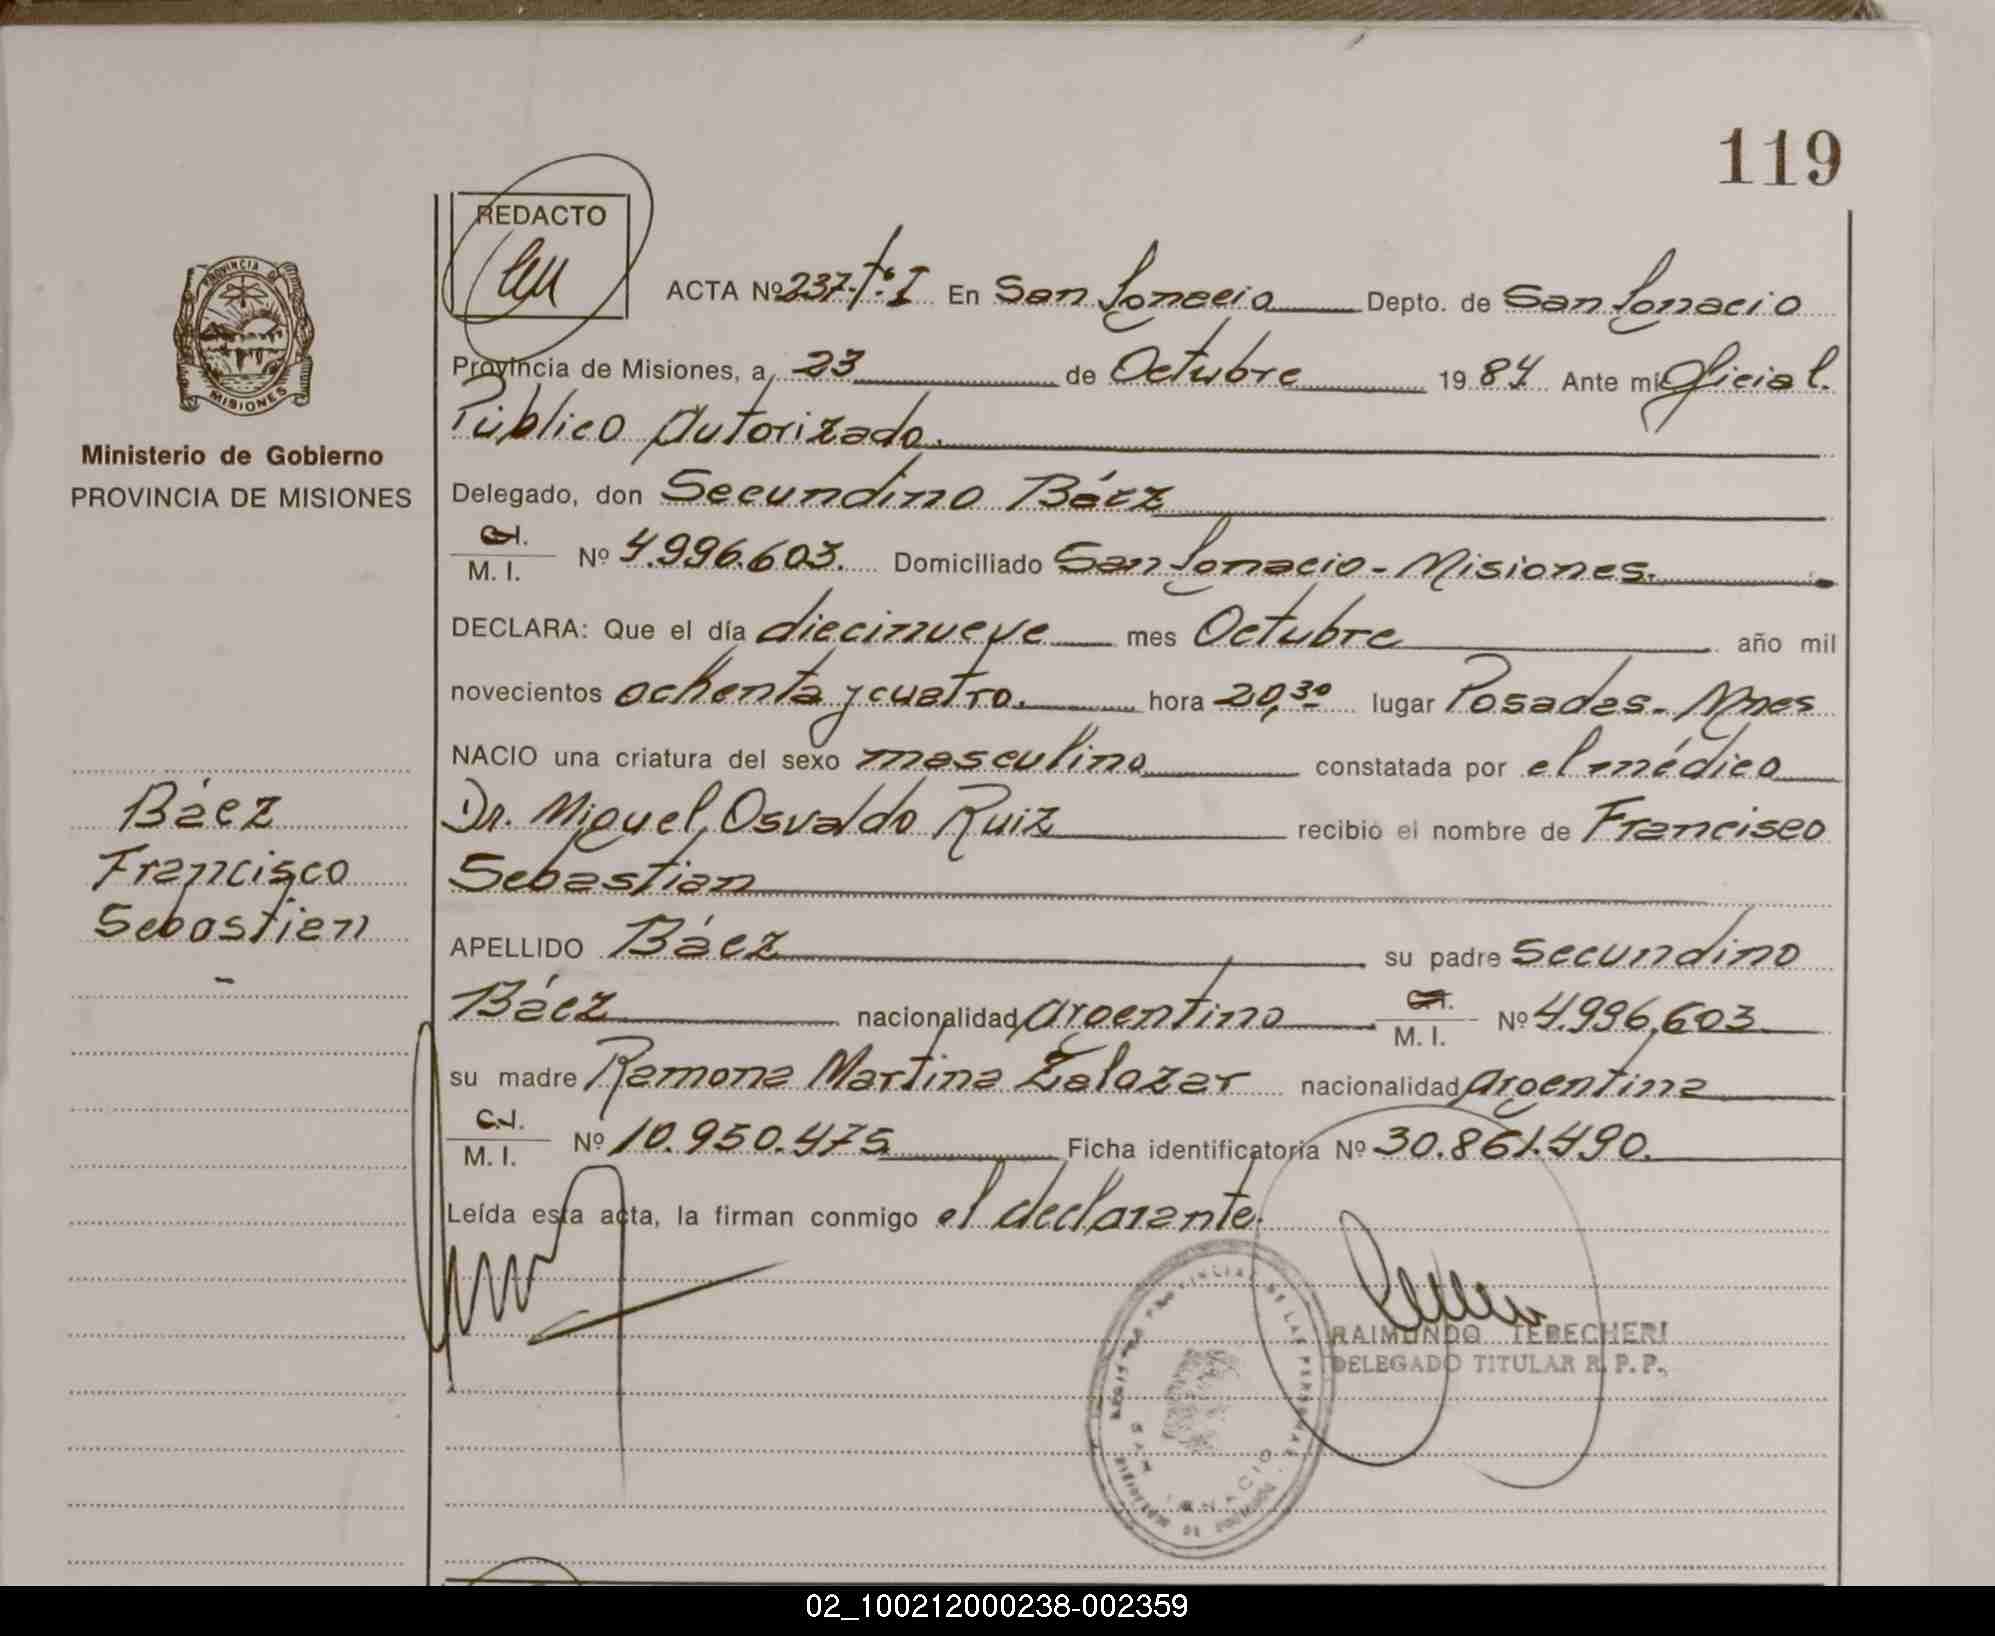 119
REDACTO
PROVINCIA DE
MISIONES
Ministerio de Gobierno
PROVINCIA DE MISIONES
ACTA Nº 237-Tº I En San Ignacio Depto. de San Ignacio
Provincia de Misiones, a 23 de Octubre 1984 Ante mi Oficial
Público Autorizado.
Delegado, don Secundino Báez
C.I.
M. I. Nº 4.996.603. Domiciliado San Ignacio - Misiones.
DECLARA: Que el día diecinueve mes Octubre año mil
novecientos ochenta y cuatro. hora 20,30 lugar Posadas - Mnes
NACIO una criatura del sexo masculino constatada por el médico
Dr. Miguel Osvaldo Ruiz recibió el nombre de Francisco
Sebastian
Báez
Francisco
Sebastian
-
APELLIDO Báez su padre Secundino
Báez nacionalidad argentino C.I. M. I. Nº 4.996.603
su madre Ramona Martina Zalazar nacionalidad argentina
C.I.
M. I. Nº 10.950.475 Ficha identificatoria Nº 30.861.490.
Leída esta acta, la firman conmigo el declarante.
RAIMUNDO TEBECHERI
DELEGADO TITULAR R. P. P.
REGISTRO PROVINCIAL DE LAS PERSONAS
SAN IGNACIO
02_100212000238-002359